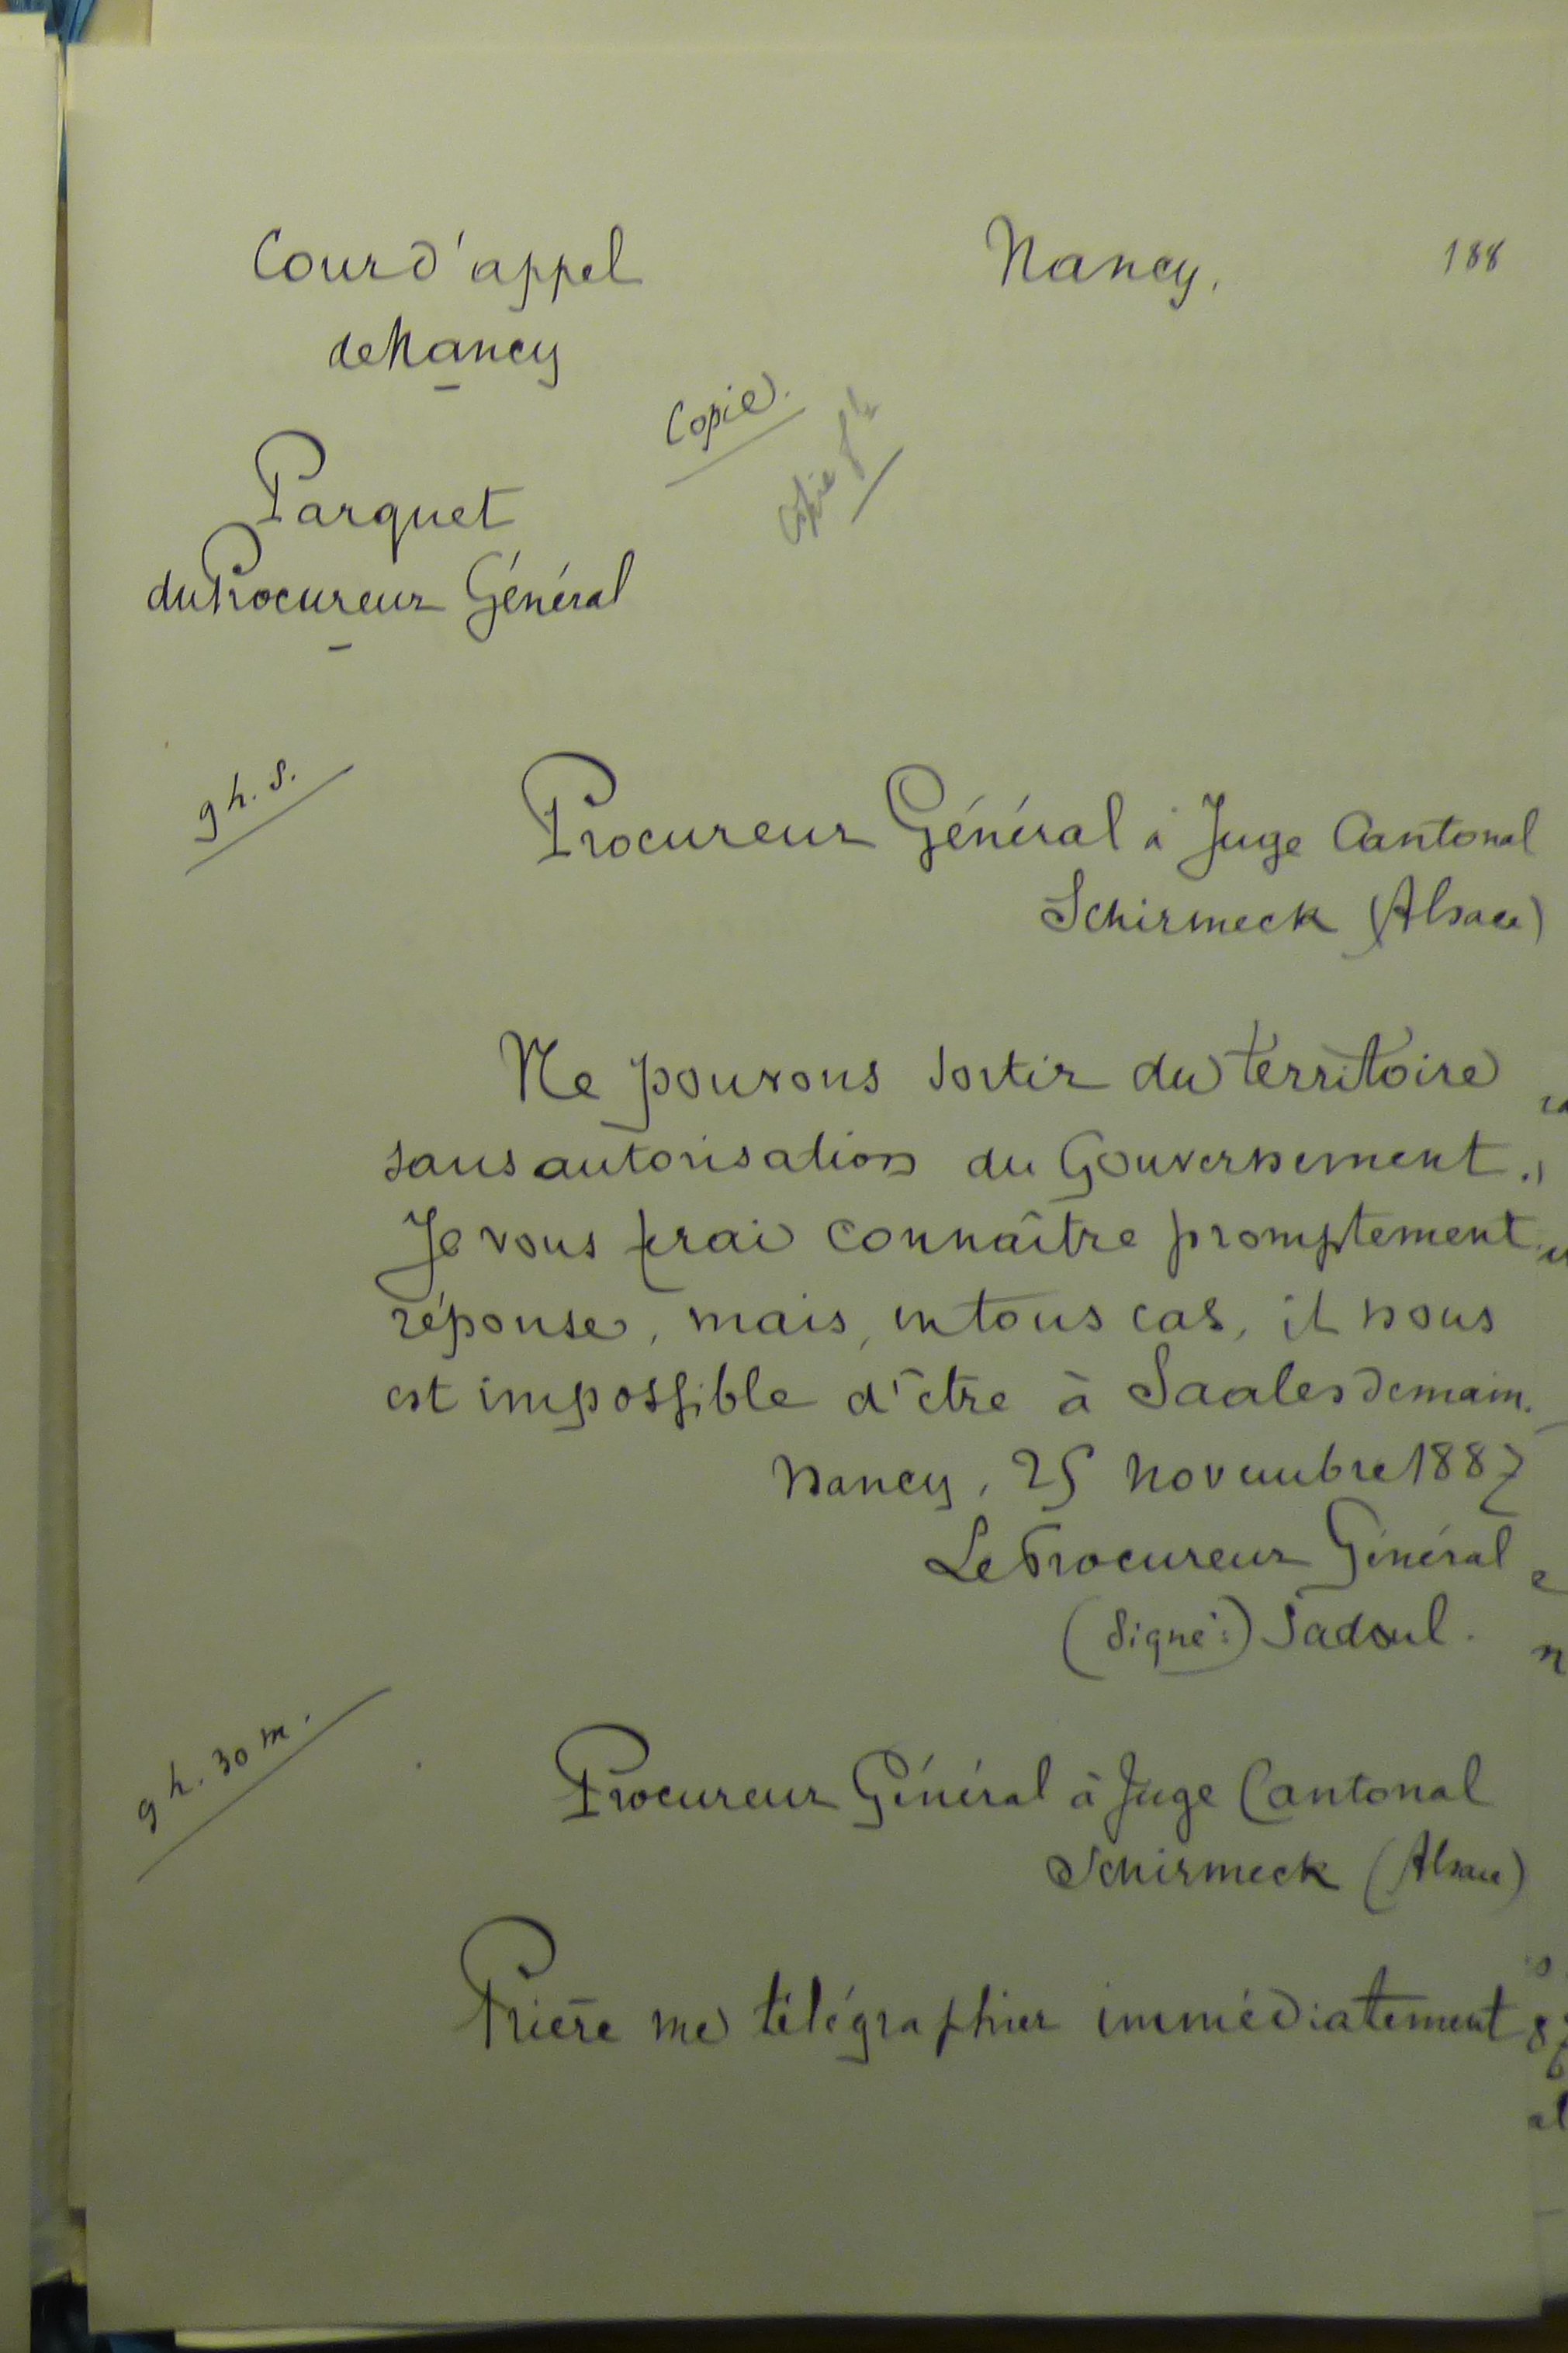 Cour d'appel
de Nancy
Nancy, 188
Copie.
Copie
Parquet
du Procureur Général
9 h. s.
Procureur Général à Juge Cantonal
Schirmeck (Alsace)
Ne pouvons sortir du territoire
sans autorisation du Gouvernement.
Je vous ferai connaître promptement
réponse, mais, en tous cas, il nous
est impossible d'être à Saales demain.
Nancy, 25 novembre 1887
Le Procureur Général
(Signé:) Sadoul.
9 h. 30 m.
Procureur Général à Juge Cantonal
Schirmeck (Alsace)
Prière me télégraphier immédiatement